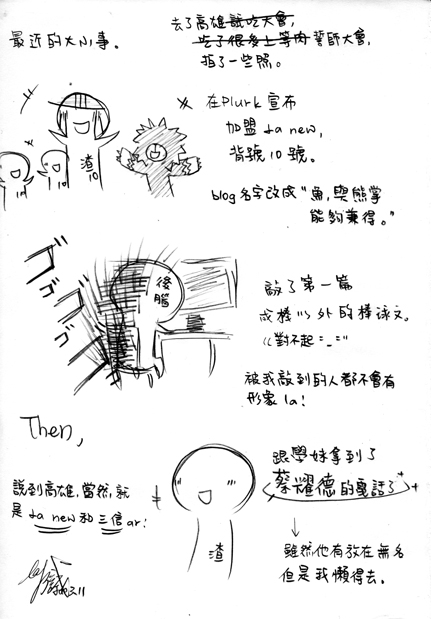 最近的大小事。
去了高雄試吃大會,
吃了很多上等肉誓師大會,
拍了一些照。
※ 在Plurk宣布
加盟 La new,
背號10號。
渣
10
blog名字改成"魚,與熊掌
能夠兼得。"
ゴゴゴ
後腦
敲了第一篇
成棒以外的棒球文。
((對不起=_="
被我敲到的人都不會有
形象la!
Then,
說到高雄,當然,就
是 La new和三信ar!
渣
跟學妹拿到了
蔡耀德的電話了
↓
雖然他有放在無名
但是我懶得去。